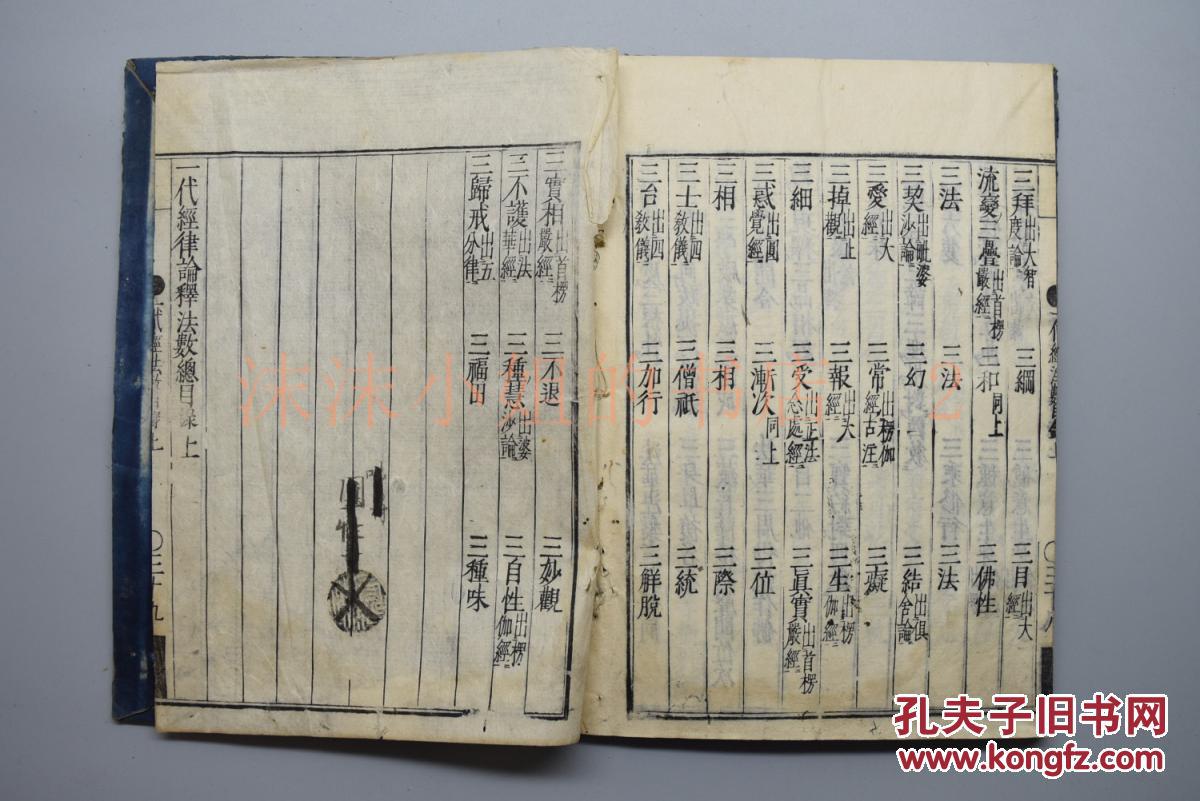 三拜出大智度論 三綱 三目出大經
流變三疊出首楞嚴經 三和同上 三佛性
三法 三法 三法
三契出毗婆沙論 三幻 三結出俱舍論
三愛出大經 三常出楞伽經古注 三礙
三掉出止觀 三報出大經 三生出楞伽經
三細 三受出正法念處經 三眞實出首楞嚴經
三惑出圓覺經 三漸次同上 三位
三相 三相 三際
三士出四教儀 三僧祇 三統
三台出四教儀 三加行 三解脫
三實相出首楞嚴經 三不退 三妙觀
三不護出法華經 三種慧出婆沙論 三自性出楞伽經
三歸戒出五分律 三福田 三種味
一代經律論釋法數總目錄上
三十九
沫沫小姐的书店 2
孔夫子旧书网
www.kongfz.com